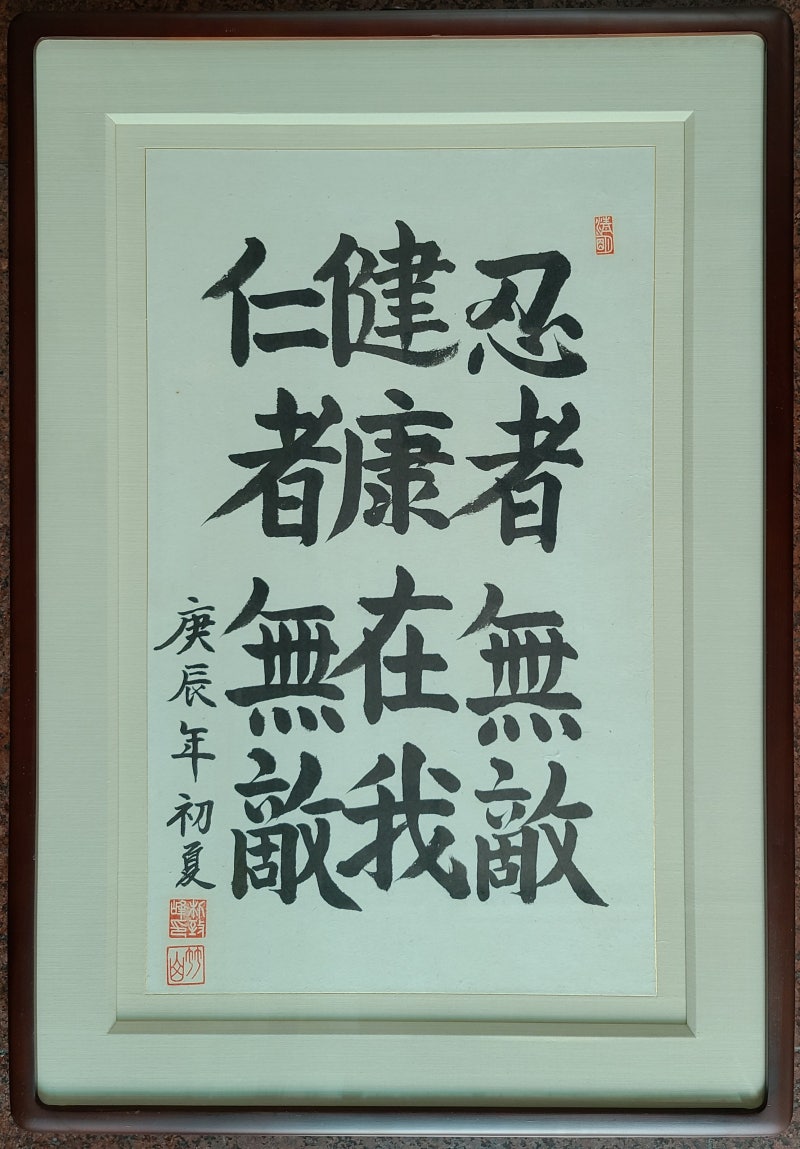 忍者無敵
健康在我
仁者無敵
庚辰年初夏